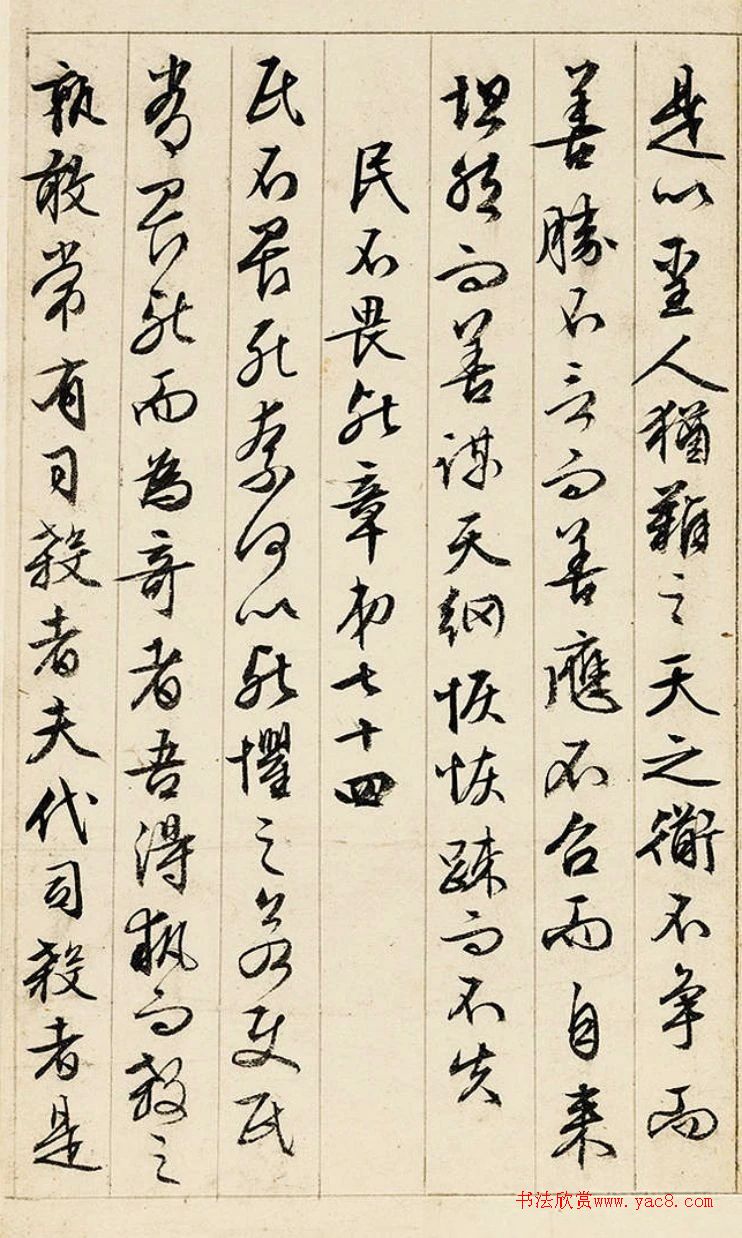 是以聖人猶難之天之衜不争而
善勝不言而善應不召而自来
坦然而善謀天網恢恢踈而不失
民不畏死章第七十四
民不畏死奈何以死懼之若使民
常畏死而為奇者吾得執而殺之
孰敢常有司殺者夫代司殺者是
书法欣赏www.yac8.com